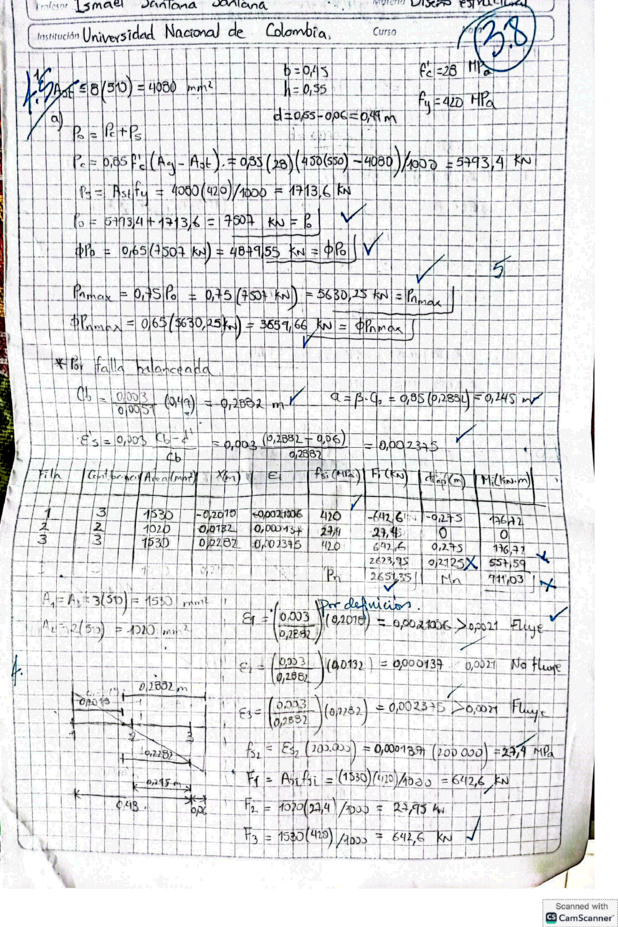 Profesor Ismael Santana Santana Materia Diseño estructural
Institución Universidad Nacional de Colombia. Curso Nota 3.8
b=0,45 f'c=28 MPa
Ast = 8(510) = 4080 mm² h=0,55 fy=420 MPa
d=0,55-0,06=0,49 m
a)
Po = Pc+Ps
Pc = 0,85 f'c (Ag - Ast) = 0,85 (28) (450(550) - 4080)/1000 = 5793,4 KN
Ps = Ast fy = 4080(420)/1000 = 1713,6 KN
Po = 5793,4+1713,6 = 7507 KN = Po
ϕPo = 0,65(7507 KN) = 4879,55 KN = ϕPo
5
Pnmax = 0,75 Po = 0,75 (7507 KN) = 5630,25 KN = Pnmax
ϕPnmax = 0,65(5630,25KN) = 3659,66 KN = ϕPnmax
* Por falla balanceada
Cb = 0,003/0,0051 (0,49) = 0,2882 m a = β·Cb = 0,85(0,2882) = 0,245 m
ε's = 0,003 (Cb-d')/Cb = 0,003 (0,2882-0,06)/0,2882 = 0,002375
Fila Cant barras Area(mm²) X(m) εi fsi(MPa) Fi(KN) (m) Mi(KN·m)
1 3 1530 -0,2018 -0,0021006 420 -642,6 -0,275 176,72
2 2 1020 0,0132 0,000137 27,4 27,95 0 0
3 3 1530 0,2282 0,002375 420 642,6 0,275 176,72
2623,95 0,2125 557,59
Pn 2651,35 Mn 911,03
A1=A3=3(510) = 1530 mm²
A2=2(510) = 1020 mm²
por definición.
ε1 = (0,003/0,2882)(0,2018) = 0,0021006 > 0,0021 Fluye
ε2 = (0,003/0,2882)(0,0132) = 0,000137 0,0021 No fluye
ε3 = (0,003/0,2882)(0,2282) = 0,002375 > 0,0021 Fluye
fs2 = Es2 (200.000) = 0,0001371 (200 000) = 27,4 MPa
F1 = Asi fsi = (1530)(420)/1000 = 642,6 KN
F2 = 1020(27,4)/1000 = 27,95 KN
F3 = 1530(420)/1000 = 642,6 KN
0,2882 m
0,2018
1 2 3
0,2282
0,245 m
0,49 0,06
Scanned with
CS CamScanner